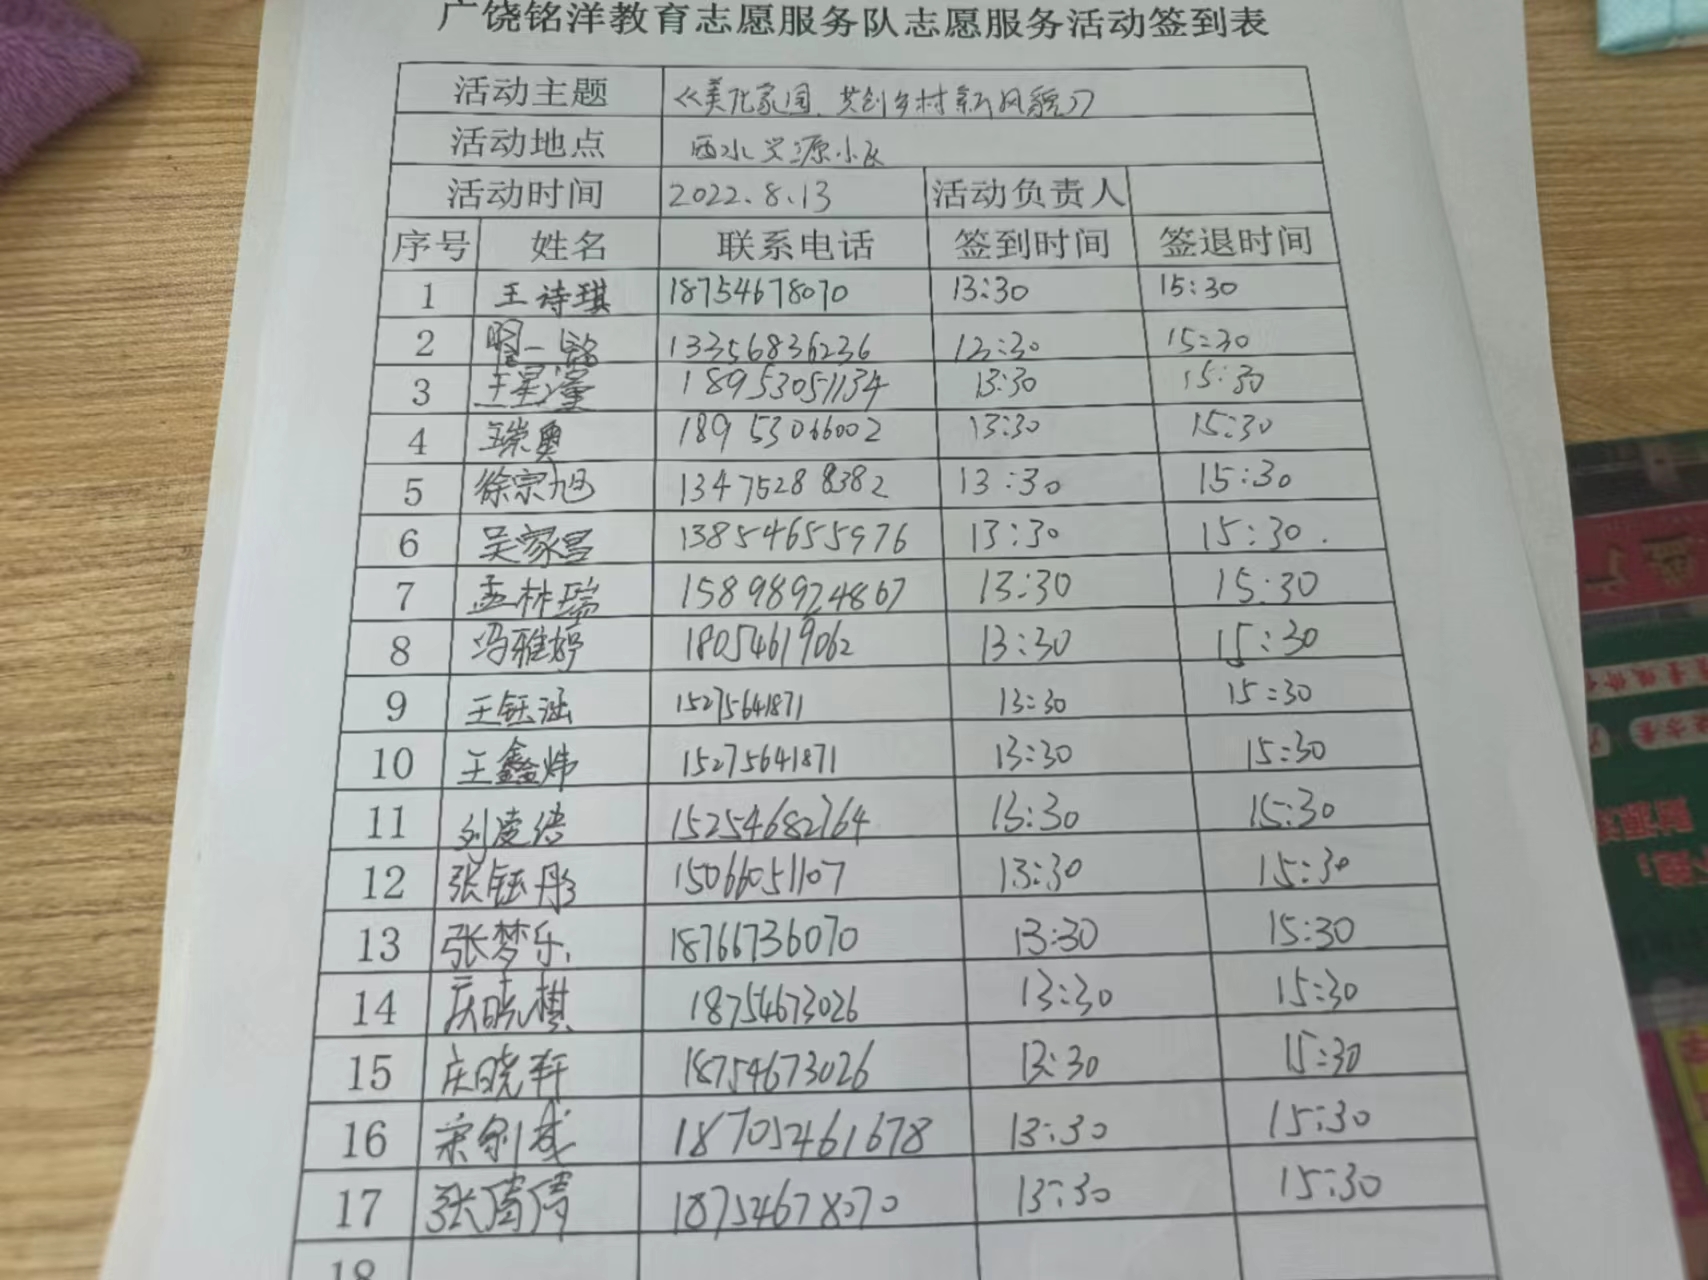 广饶铭洋教育志愿服务队志愿服务活动签到表
活动主题 《美化家园、共创乡村新风貌》
活动地点 西水义源小区
活动时间 2022.8.13 活动负责人
序号 姓名 联系电话 签到时间 签退时间
1 王诗琪 18754678070 13:30 15:30
2 13356836236 13:30 15:30
3 王星潼 18953051134 13:30 15:30
4 王崇奥 18953066002 13:30 15:30
5 徐宗旭 13475288382 13:30 15:30
6 吴家昌 13854655976 13:30 15:30.
7 孟林瑞 15898924867 13:30 15:30
8 冯雅婷 18054619062 13:30 15:30
9 王钰涵 15275641871 13:30 15:30
10 王鑫炜 15275641871 13:30 15:30
11 刘凌倍 15254682764 13:30 15:30
12 张钰彤 15066051107 13:30 15:30
13 张梦乐 18766736070 13:30 15:30
14 庆晓棋 18754673026 13:30 15:30
15 庆晓轩 18754673026 13:30 15:30
16 宋剑成 18705461678 13:30 15:30
17 张倩倩 18754678070 13:30 15:30
18